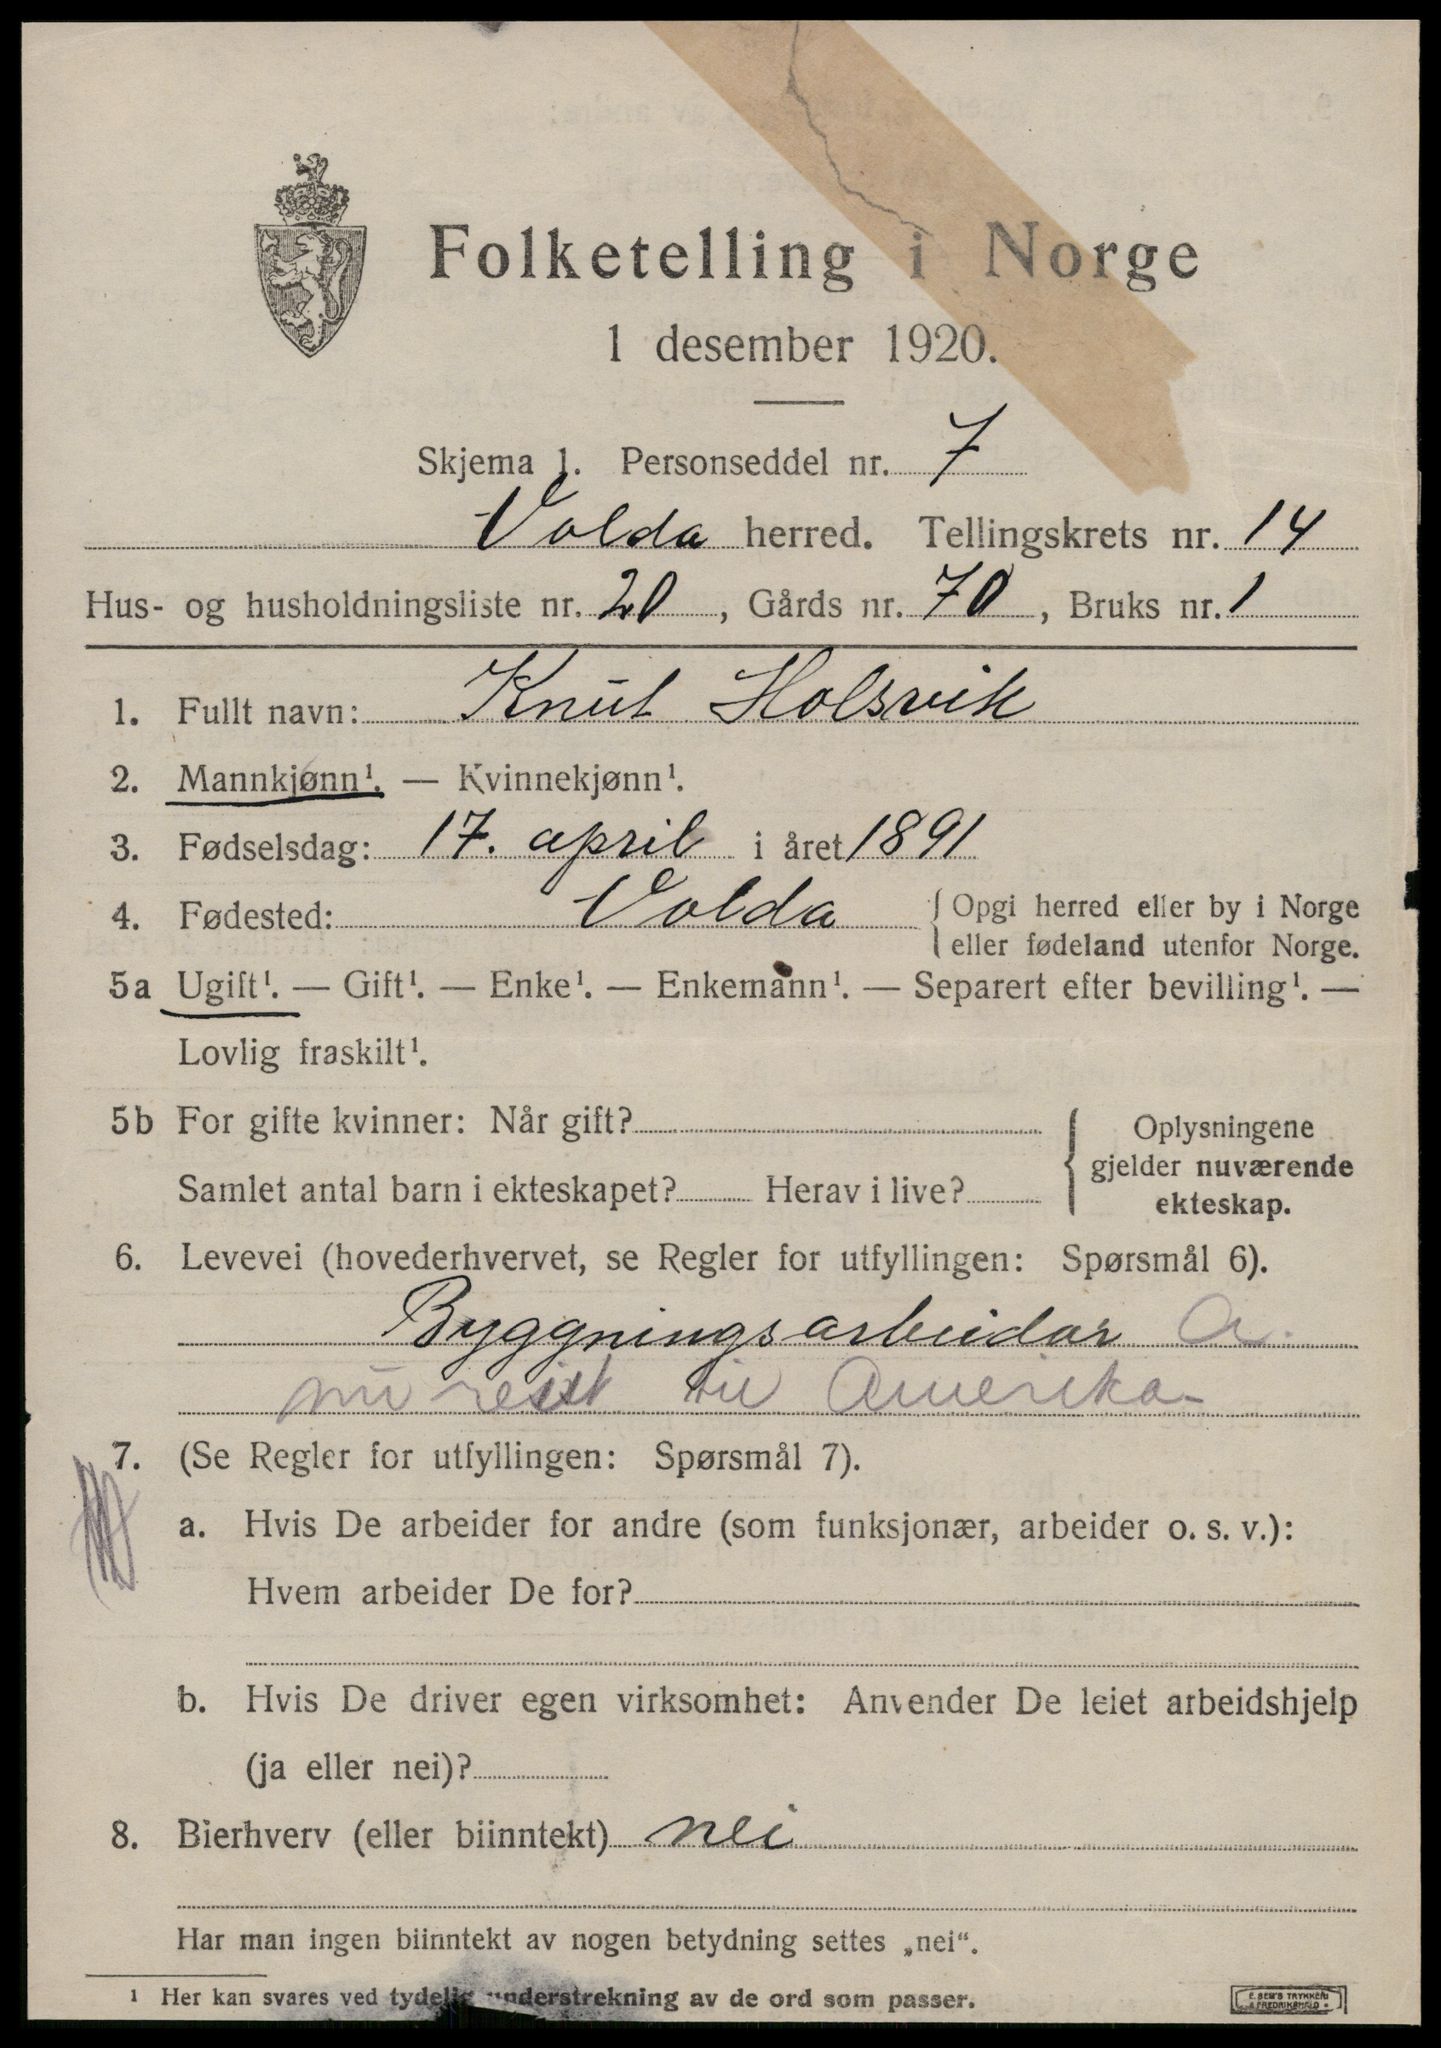 Folketelling i Norge
1 desember 1920.
Skjema 1. Personseddel nr. 7
Volda herred. Tellingskrets nr. 14
Hus- og husholdningsliste nr. 20, Gårds nr. 70, Bruks nr. 1
1. Fullt navn: Knut Holsvik
2. Mannkjønn¹. — Kvinnekjønn¹.
3. Fødselsdag: 17. april i året 1891
4. Fødested: Volda { Opgi herred eller by i Norge
eller fødeland utenfor Norge.
5a Ugift¹. — Gift¹. — Enke¹. — Enkemann¹. — Separert efter bevilling¹. —
Lovlig fraskilt¹.
5b For gifte kvinner: Når gift?
Samlet antal barn i ekteskapet? Herav i live?
{ Oplysningene
gjelder nuværende
ekteskap.
6. Levevei (hovederhvervet, se Regler for utfyllingen: Spørsmål 6).
Byggningsarbeidar a.
nu reist til Amerika
7. (Se Regler for utfyllingen: Spørsmål 7).
a. Hvis De arbeider for andre (som funksjonær, arbeider o. s. v.):
Hvem arbeider De for?
b. Hvis De driver egen virksomhet: Anvender De leiet arbeidshjelp
(ja eller nei)?
8. Bierhverv (eller biinntekt) nei
Har man ingen biinntekt av nogen betydning settes „nei".
¹ Her kan svares ved tydelig understrekning av de ord som passer.
E. SEM'S TRYKKERI
FREDRIKSHALD